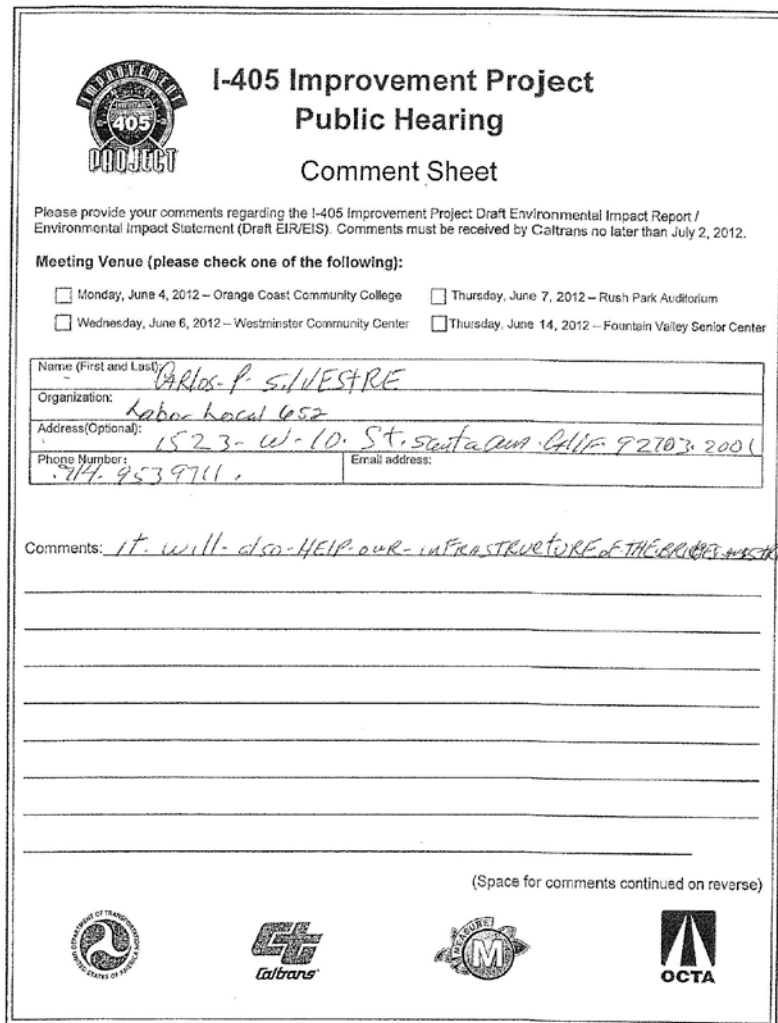 IMPROVEMENT
INTERSTATE
405
PROJECT
I-405 Improvement Project
Public Hearing
Comment Sheet
Please provide your comments regarding the I-405 Improvement Project Draft Environmental Impact Report /
Environmental Impact Statement (Draft EIR/EIS). Comments must be received by Caltrans no later than July 2, 2012.
Meeting Venue (please check one of the following):
Monday, June 4, 2012 – Orange Coast Community College
Thursday, June 7, 2012 – Rush Park Auditorium
Wednesday, June 6, 2012 – Westminster Community Center
Thursday, June 14, 2012 – Fountain Valley Senior Center
Name (First and Last): CARlos - P - SILVESTRE
Organization: Labor Local 652
Address(Optional): 1523 - W - 10. St. santa ana. CALIF. 92703. 2001
Phone Number: .714. 9539711.
Email address:
Comments: It - will - also - HElP - our - inFRASTRUCtURE OF THE BRIDGES
(Space for comments continued on reverse)
DEPARTMENT OF TRANSPORTATION
UNITED STATES OF AMERICA
Caltrans
MEASURE
M
OCTA